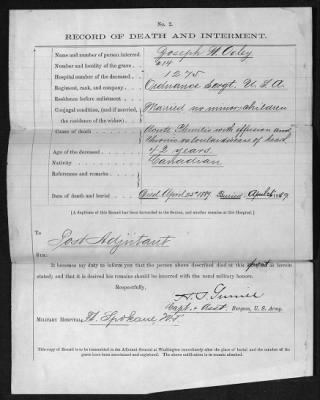 No. 2.
RECORD OF DEATH AND INTERMENT.
Name and number of person interred Joseph H. Oxley
Number and locality of the grave 614
Hospital number of the deceased 1275
Regiment, rank, and company Ordnance Sergt. U.S.A.
Residence before enlistment
Conjugal condition, (and if married, Married no minor children
the residence of the widow)
Cause of death Acute Pleuritis with effusion and
chronic valvular disease of heart
Age of the deceased 42 years.
Nativity Canadian
References and remarks
Date of death and burial Died April 25th 1889 Buried April 26 1889
[A duplicate of this Record has been forwarded to the Sexton, and another remains at this Hospital.]
To
Post Adjutant
SIR:
It becomes my duty to inform you that the person above described died at this post as herein
stated; and that it is desired his remains should be interred with the usual military honors.
Respectfully,
Capt. & Asst. Surgeon, U. S. Army.
MILITARY HOSPITAL, Ft. Spokane W.T.
This copy of Record is to be transmitted to the Adjutant General at Washington immediately after the place of burial and the number of the
grave have been ascertained and registered. The above notification is to remain attached.